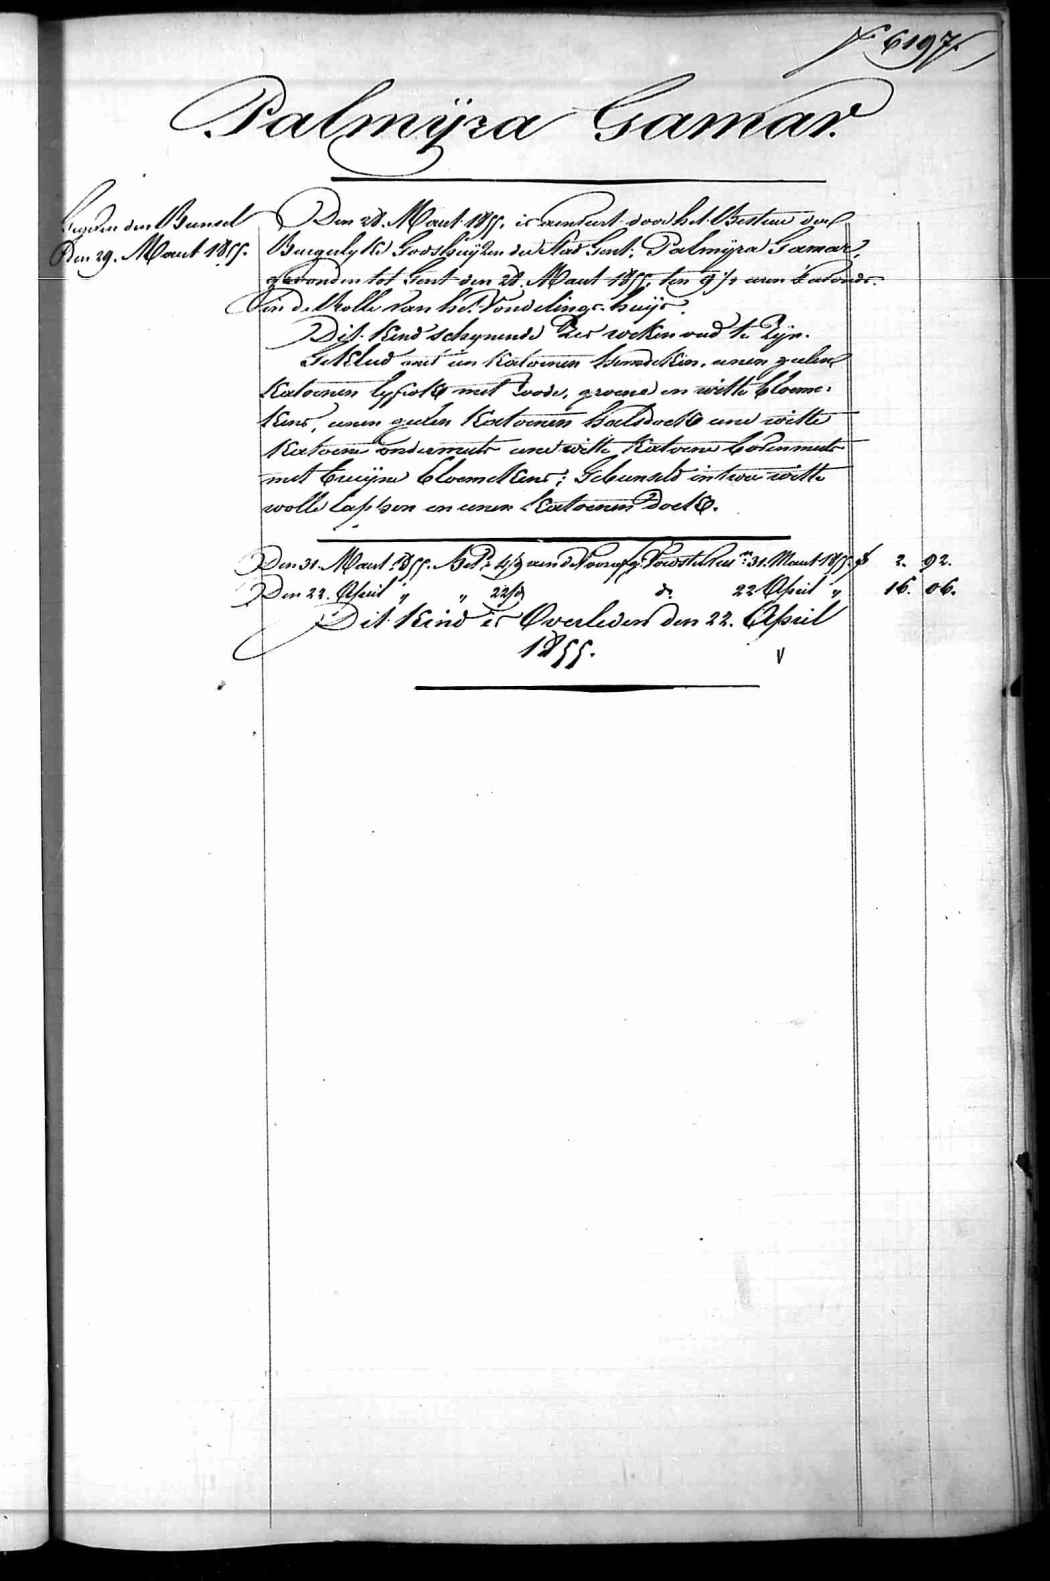 Nº 6197.
Palmÿra Gamar.
Gegeven den Bunsel
Den 29. Maart 1855.
Den 28. Maart 1855. is aenveert door het Bestuur der
Burgerlyke Godshuÿzen der Stad Gent: Palmÿra Gamar,
gevonden tot Gent den 28. Maart 1855, ten 9 ½ uren 's avonds.
in de Rolle van het Vondelings-huÿs.
Dit kind schynende zes weken oud te zÿn.
Gekleed met een katoenen hemdeken, eenen geelen
katoenen lyfrok met roode, groene en witte bloeme-
kens, eenen geelen katoenen halsdoek eene witte
katoene ondermuts eene witte katoene bovenmuts
met bruÿne bloemekens; Gebunseld in twee witte
wolle lappen en eenen katoenen doek.
Den 31. Maart 1855. Bet. 4/d aen de Voorz. Voedster 31. Maart 1855. f 2. 92.
Den 22. April " " 22/d dº 22 April " 16. 06.
Dit kind is Overleden den 22. April
1855.